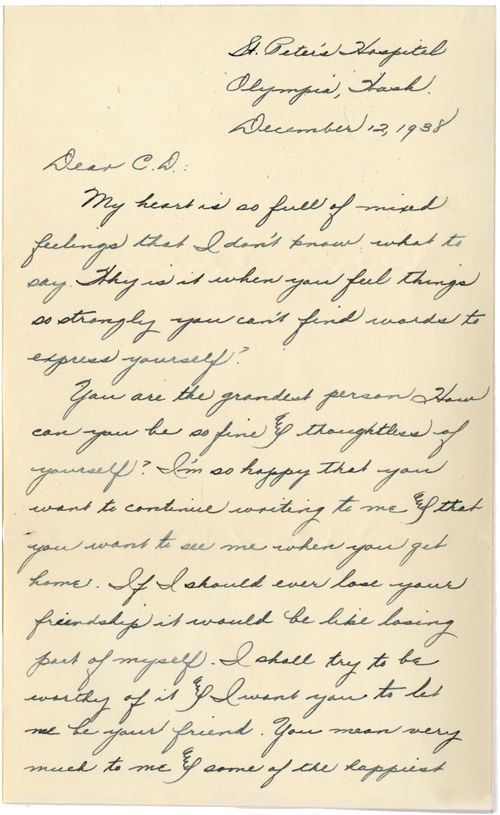 St. Peter's Hospital
Olympia, Wash.
December 12, 1938
Dear C.D.:
My heart is so full of mixed
feelings that I don't know what to
say. Why is it when you feel things
so strongly you can't find words to
express yourself?
You are the grandest person. How
can you be so fine & thoughtless of
yourself? I'm so happy that you
want to continue writing to me & that
you want to see me when you get
home. If I should ever lose your
friendship it would be like losing
part of myself. I shall try to be
worthy of it & I want you to let
me be your friend. You mean very
much to me & some of the happiest